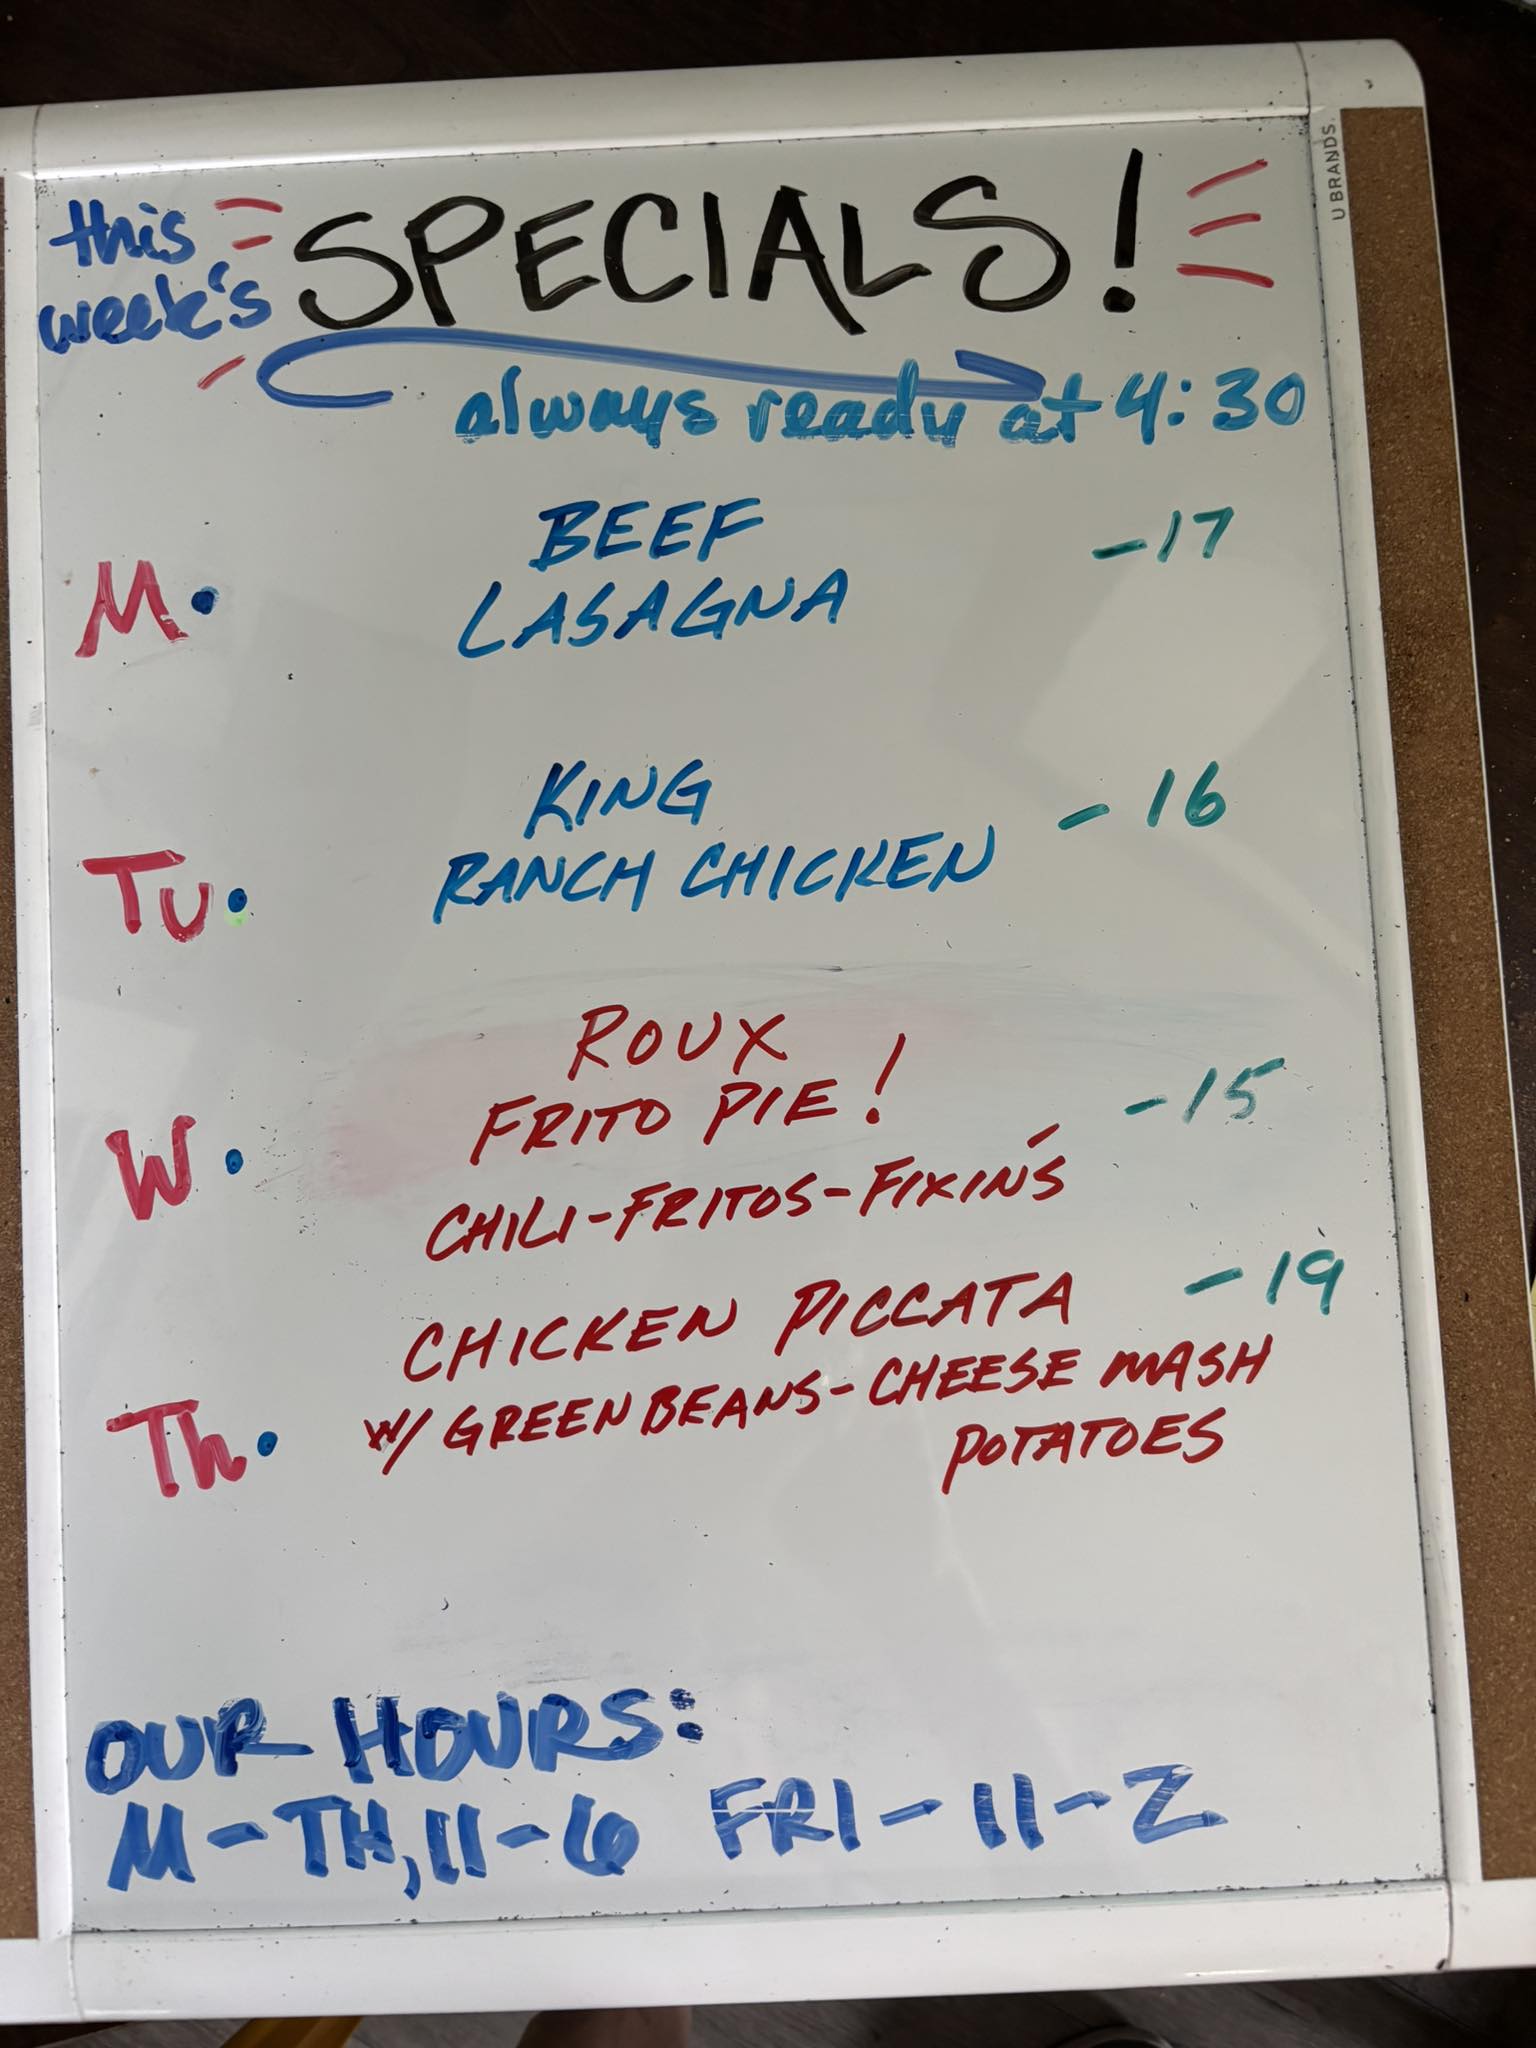 this week's SPECIALS!
always ready at 4:30
M. BEEF LASAGNA -17
Tu. KING RANCH CHICKEN - 16
W. ROUX FRITO PIE! -15
CHILI-FRITOS-FIXIN'S
Th. CHICKEN PICCATA - 19
W/ GREEN BEANS - CHEESE MASH
POTATOES
OUR HOURS:
M - TH, 11 - 6 FRI - 11 - 2
U BRANDS